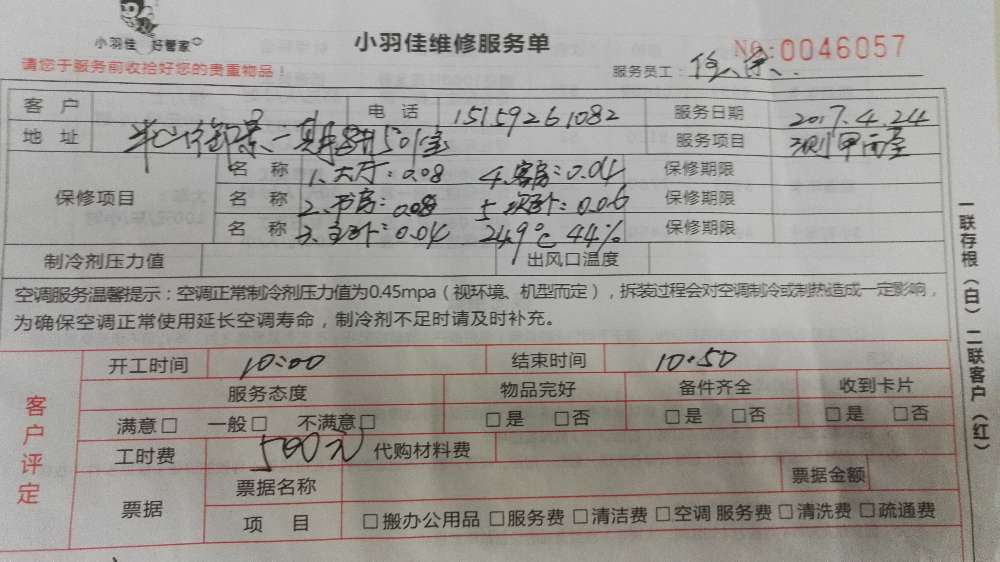 小羽佳 好管家
小羽佳维修服务单
NO:0046057
请您于服务前收拾好您的贵重物品！
服务员工：
客 户 电 话 15159261082 服务日期 2017.4.24
地 址 一期 501室 服务项目 测甲而至
保修项目
名 称 1.大厅：0.08 4.客房：0.04 保修期限
名 称 2.书房：0.08 5.次卧：0.06 保修期限
名 称 3.主卧：0.04 24.9℃ 44% 保修期限
制冷剂压力值 出风口温度
空调服务温馨提示：空调正常制冷剂压力值为0.45mpa（视环境、机型而定），拆装过程会对空调制冷或制热造成一定影响，
为确保空调正常使用延长空调寿命，制冷剂不足时请及时补充。
一联存根（白）二联客户（红）
客户评定
开工时间 10:00 结束时间 10:50
服务态度 物品完好 备件齐全 收到卡片
满意□ 一般□ 不满意□ □是 □否 □是 □否 □是 □否
工时费 500元 代购材料费
票据 票据名称 票据金额
项 目 □搬办公用品 □服务费 □清洁费 □空调 服务费 □清洗费 □疏通费